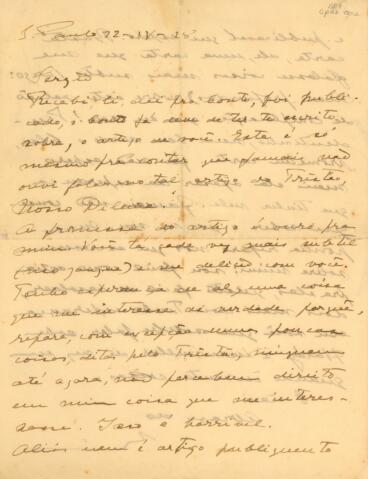 S. Paulo 22-IV-28
Sergio
Recebi-te, dei pra conto, foi publi-
cado, o conto já devem de ter-te escrito
sobre, o artigo de você. Esta é só
mesmo pra contar que jamais não
ouvi falar no tal artigo do Tristão,
Nosso
A promessa do artigo é pra
mim. Você tá cada vez mais subtil
e me delicio com você.
Tenho que alguma coisa
que me interesse de verdade porquê,
repare, com excepção numas poucas
coisas, ditas pelo Tristão, ninguem
até agora, não percebeu direito
em mim coisa que me interes-
sasse. Isso é horrivel.
Aliás nem é artigo